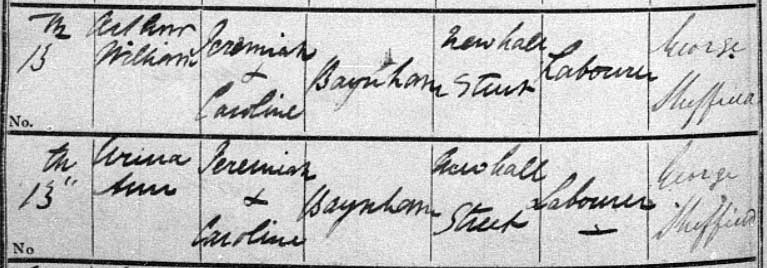 13th Arthur William Jeremiah + Caroline Baynham Newhall Street Labourer George Sheffield
No.
13th Ann Jeremiah + Caroline Baynham Newhall Street Labourer George Sheffield
No